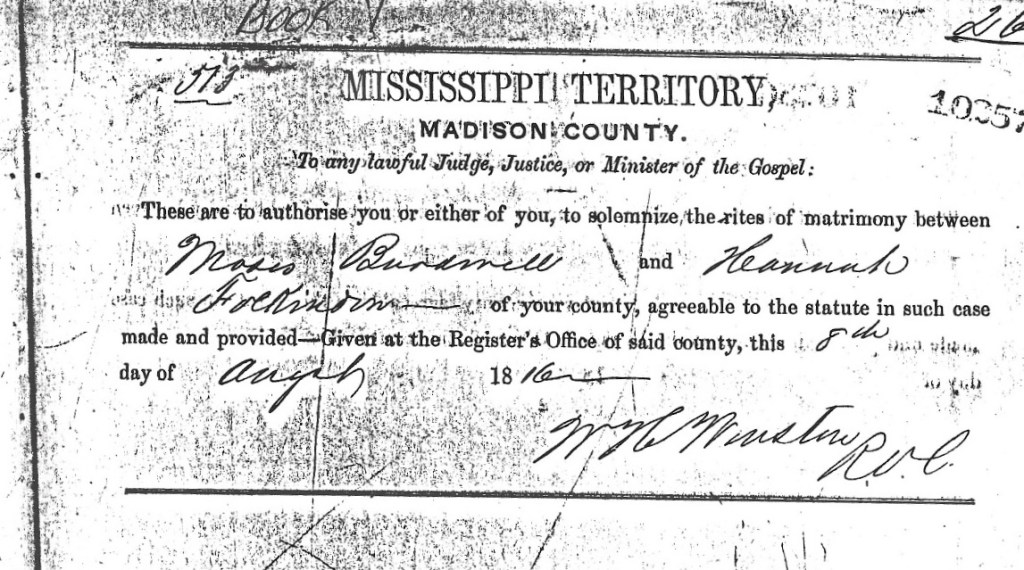 Book 1 26
513 MISSISSIPPI TERRITORY, 10357
MADISON COUNTY.
To any lawful Judge, Justice, or Minister of the Gospel:
These are to authorise you or either of you, to solemnize, the rites of matrimony between
Moses Burdwell and Hannah
of your county, agreeable to the statute in such case
made and provided—Given at the Register's Office of said county, this 8th
day of 18 16
W H Winston